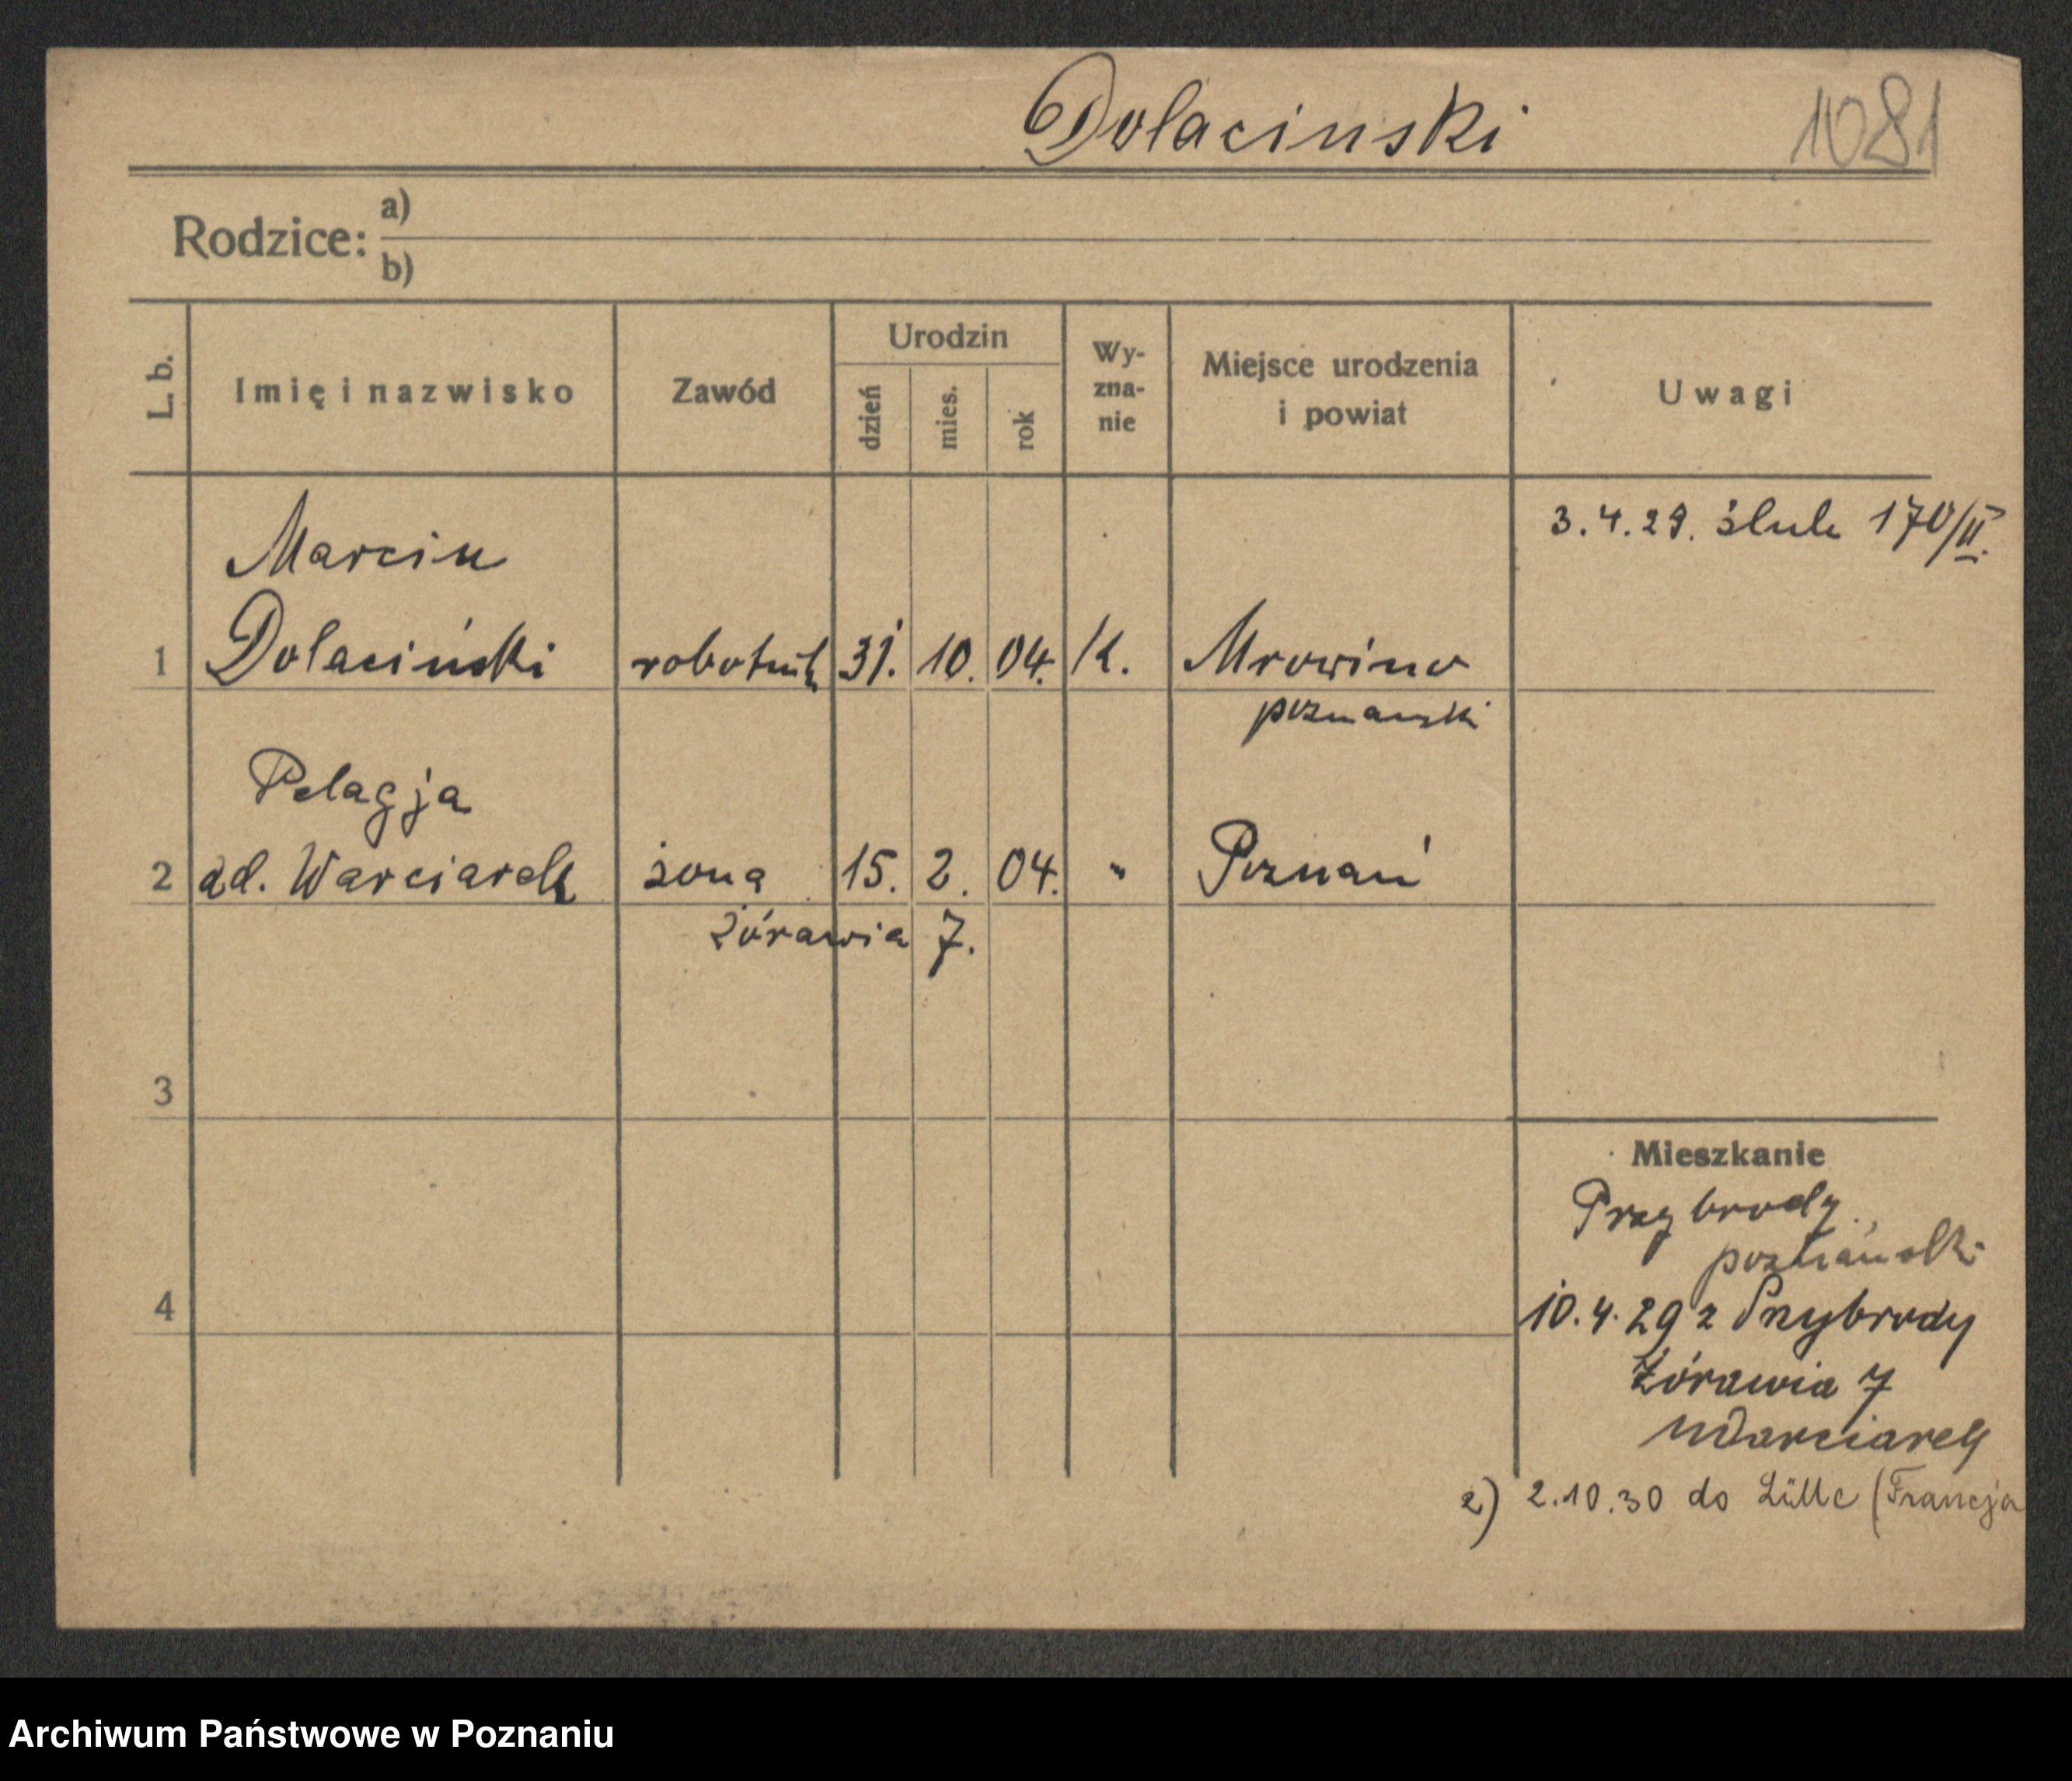 Dolacinski 1081
Rodzice: a)
b)
L. b. Imię i nazwisko Zawód Urodzin dzień mies. rok Wy-
zna-
nie Miejsce urodzenia
i powiat Uwagi
3.4.29. ślub 170/II.
Marcin
1 Dolaciński robotnik 31. 10. 04. K. Mrowino
poznański
Pelagja
2 dd. Warciarek żona 15. 2. 04. " Poznań
Żórawia 7.
3
Mieszkanie
Przybrody
poznański
4 10.4.29 z Przybrody
Żórawia 7
u Warciarek
2) 2.10.30 do Lille (Francja
Archiwum Państwowe w Poznaniu